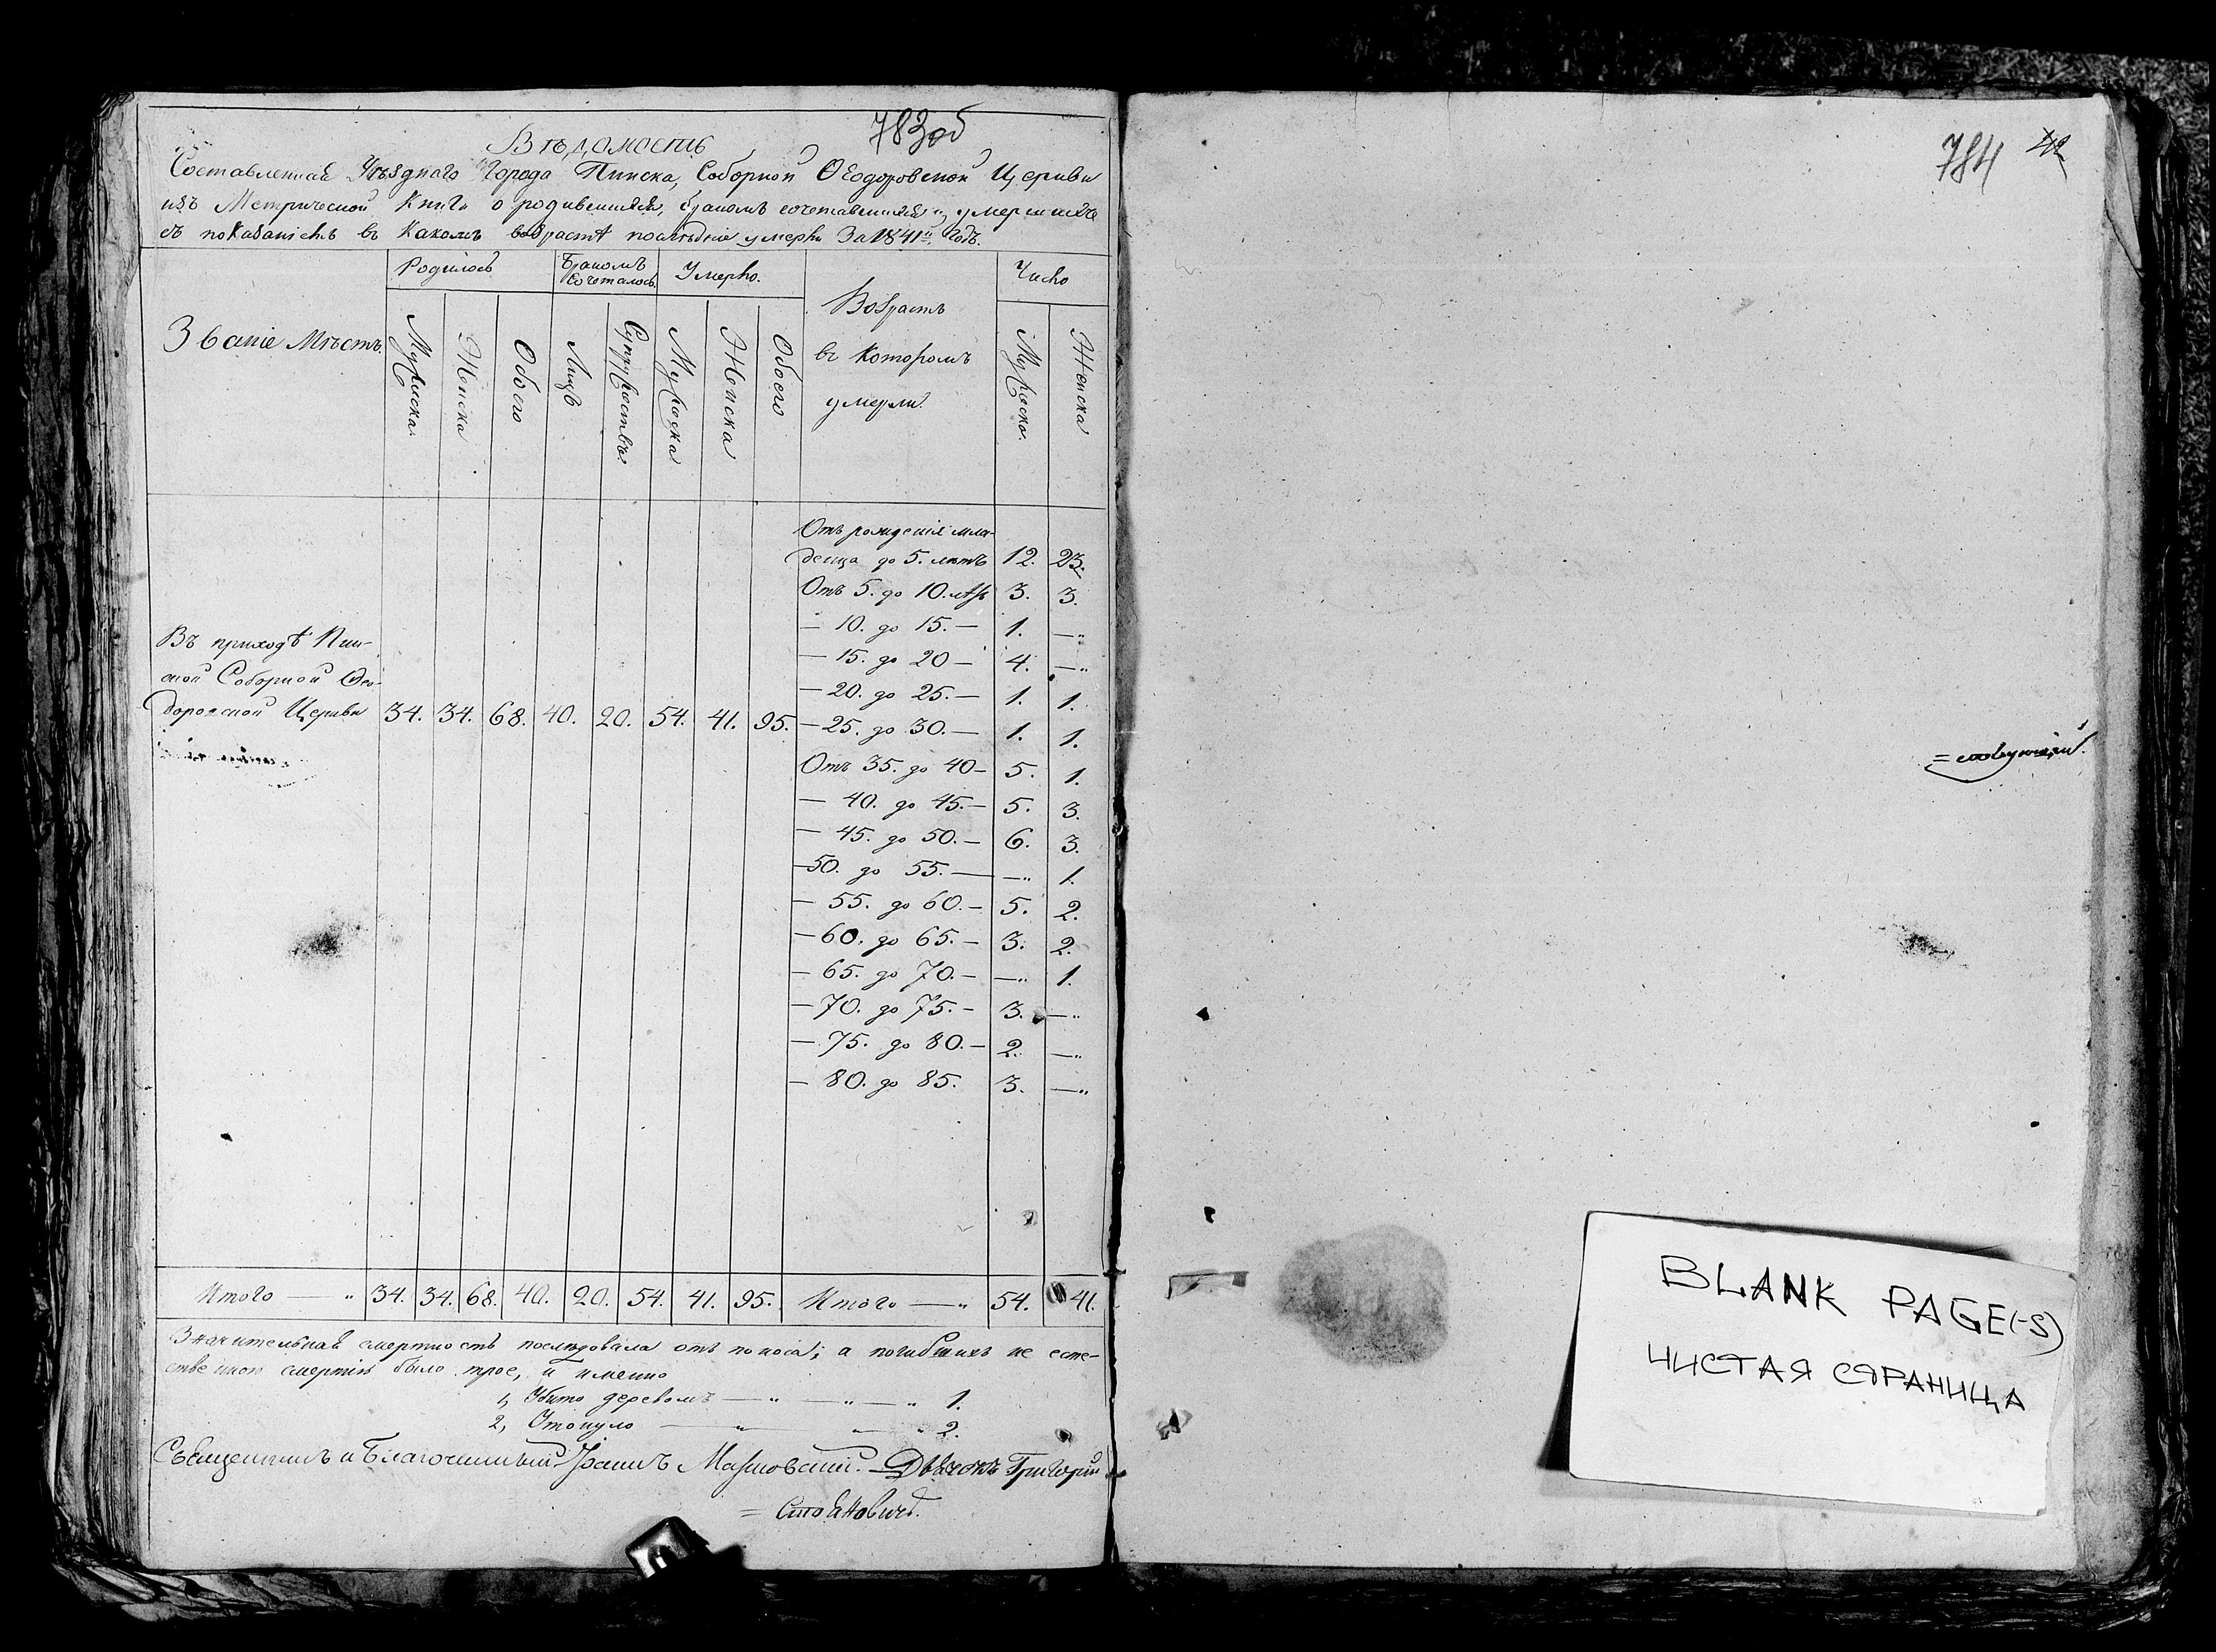 783об
Вѣдомость
Составленная Уѣзднаго Города Пинска, Соборной Ѳеодоровской Церкви
изъ Метрической Книги о родившихся, бракомъ сочетавшихся и умершихъ
съ показаніемъ въ какомъ возрастѣ послѣдніе умерли За 1841й Годъ.
Званіе Мѣстъ.
Родилось
Бракомъ сочеталось.
Умерло.
Возрастъ
въ которомъ
умерли.
Число
Мужеска.
Женска
Обоего
Лицъ
Супружествъ.
Мужеска
Женска
Обоего
Мужеска.
Женска
Отъ рожденія мла-
денца до 5. лѣтъ 12. 23.
Отъ 5. до 10. лѣтъ 3. 3.
— 10. до 15. — 1. —„
— 15. до 20 — 4. —„
— 20. до 25. — 1. 1.
Въ приходѣ Пин-
ской Соборной Ѳео-
доровской Церкви 34. 34. 68. 40. 20. 54. 41. 95. — 25. до 30. — 1. 1.
Отъ 35. до 40 — 5. 1.
— 40. до 45. — 5. 3.
— 45. до 50. — 6. 3.
— 50. до 55. — —„ 1.
— 55. до 60. — 5. 2.
— 60. до 65. — 3. 2.
— 65. до 70. — —„ 1.
— 70. до 75. — 3. —„
— 75. до 80. — 2. —„
— 80. до 85. 3. —„
Итого — „ 34. 34. 68. 40. 20. 54. 41. 95. Итого — „ 54. 41.
Значительная смертность послѣдовала отъ поноса; а погибшихъ не есте-
ственною смертію было трое, и именно
1, Убито деревомъ — „ — „ — „ 1.
2, Утонуло — „ — „ — „ 2.
Священникъ и Благочинный Іоаннъ Дьячокъ Григорій
= Стояновичъ.
784
BLANK PAGE(-S)
ЧИСТАЯ СТРАНИЦА